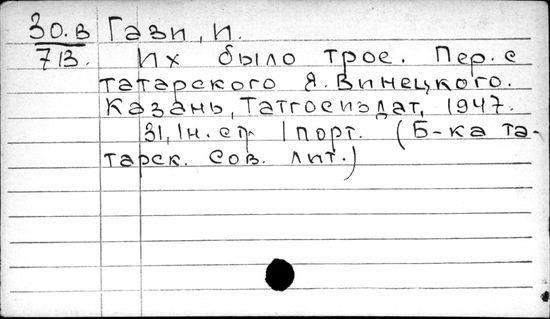 30.в Гази, И.
713. Их было трое. Пер. с
татарского Я. Винецкого.
Казань, Татгосиздат, 1947.
31, 1н. стр 1 порт. (Б-ка та-
тарск. сов. лит.)